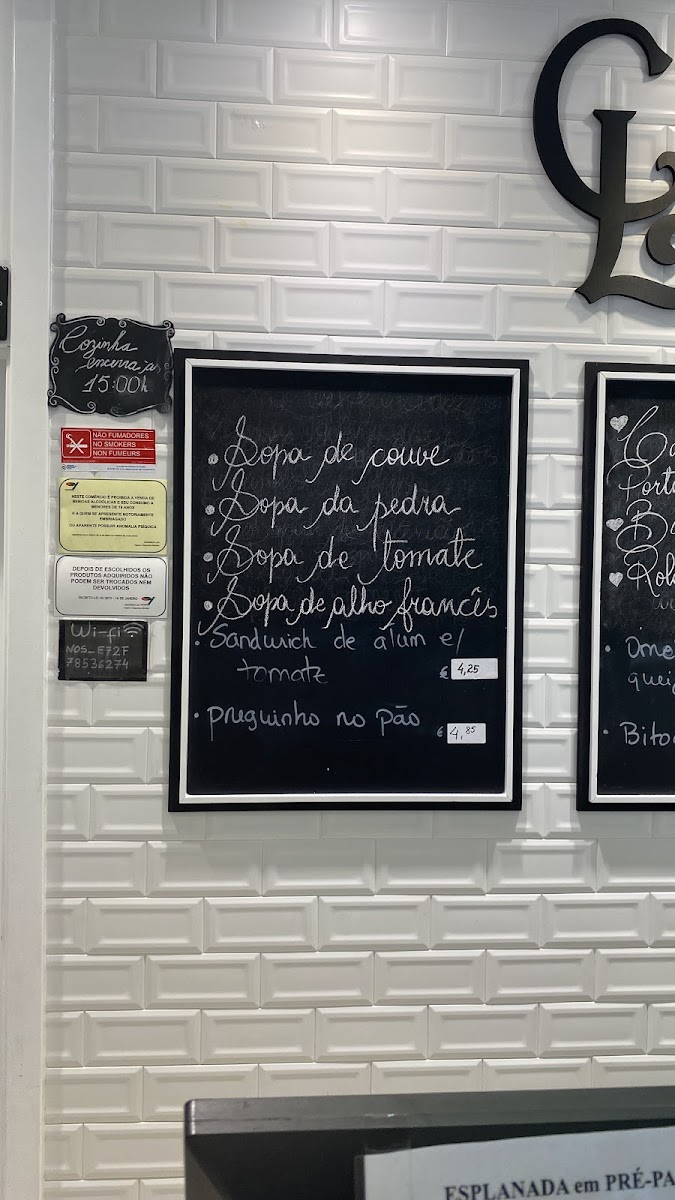 Cozinha
encerra às
15:00h
NÃO FUMADORES
NO SMOKERS
NON FUMEURS
NESTE COMÉRCIO É PROIBIDA A VENDA DE
BEBIDAS ALCOÓLICAS E SEU CONSUMO A
MENORES DE 18 ANOS
E A QUEM SE APRESENTE NOTORIAMENTE
EMBRIAGADO
OU APARENTE POSSUIR ANOMALIA PSÍQUICA
DEPOIS DE ESCOLHIDOS OS
PRODUTOS ADQUIRIDOS NÃO
PODEM SER TROCADOS NEM
DEVOLVIDOS
Wi-fi
NOS_E72F
78536274
• Sopa de couve
• Sopa da pedra
• Sopa de tomate
• Sopa de alho francês
• Sandwich de atum e/
tomate € 4,25
• preguinho no pão € 4,85
• Omel
queij
• Bito
ESPLANADA em PRÉ-PA